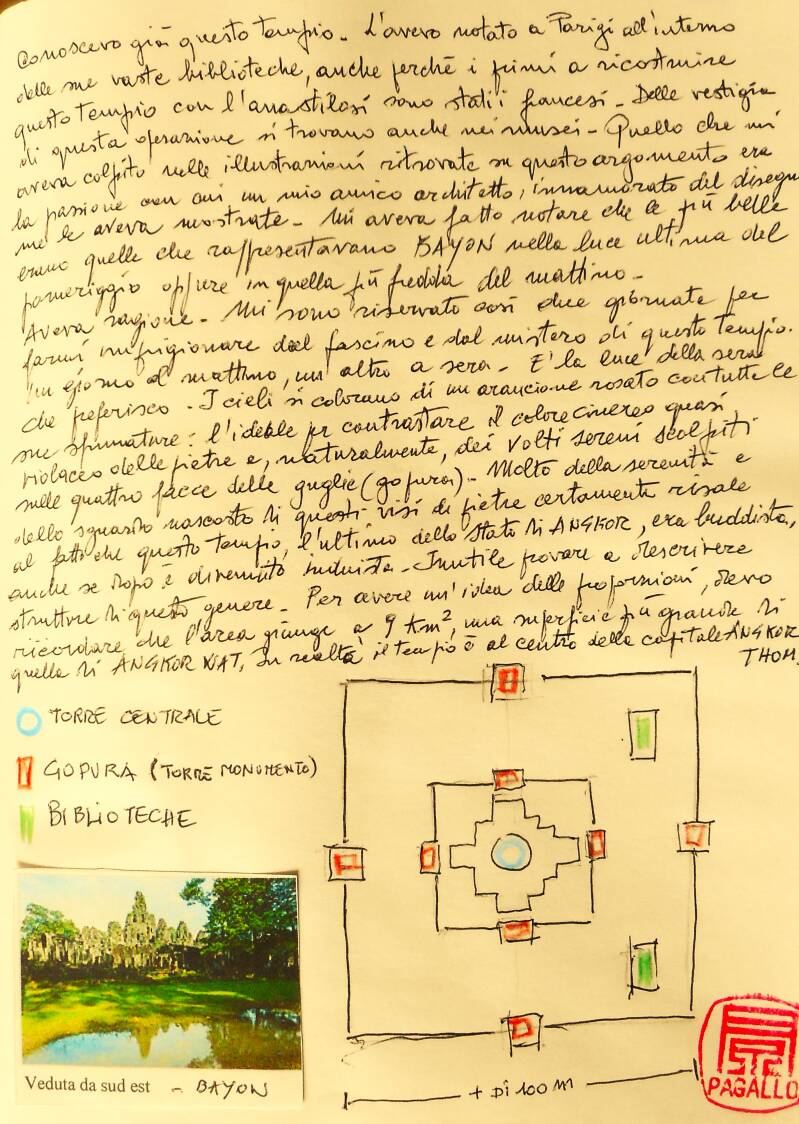 Conoscevo già questo tempio. L'avevo notato a Parigi all'interno
delle sue vaste biblioteche, anche perché i primi a ricostruire
questo tempio con l'anastilosi sono stati i francesi. Delle vestigia
di questa operazione si trovano anche nei musei. Quello che mi
aveva colpito nelle illustrazioni ritrovate su questo argomento era
la passione con cui un mio amico architetto, innamorato del disegno
me le aveva mostrate. Mi aveva fatto notare che le più belle
erano quelle che rappresentavano BAYON nella luce ultima del
pomeriggio oppure in quella più fredda del mattino.
Aveva ragione. Mi sono riservato così due giornate per
farmi imprigionare dal fascino e dal mistero di questo tempio.
Un giorno al mattino, un altro a sera. E' la luce della sera
che preferisco. I cieli si colorano di un arancione rosato con tutte le
sue sfumature: l'ideale per contrastare il colore cinereo quasi
violaceo delle pietre e, naturalmente, dei volti sereni scolpiti
sulle quattro facce delle guglie (gopura). Molto della serenità e
dello sguardo nascosto di questi visi di pietra certamente risale
al fatto che questo tempio, l'ultimo dello Stato di ANGKOR, era buddista,
anche se dopo è divenuto induista. Inutile provare a descrivere
strutture di questo genere. Per avere un'idea delle proporzioni, devo
ricordare che l'area giunge a 9 Km², una superficie più grande di
quella di ANGKOR WAT. In realtà il tempio è al centro della capitale ANGKOR
THOM.
TORRE CENTRALE
GOPURA (TORRE MONUMENTO)
BIBLIOTECHE
Veduta da sud est - BAYON
+ DI 100 M
PAGALLO